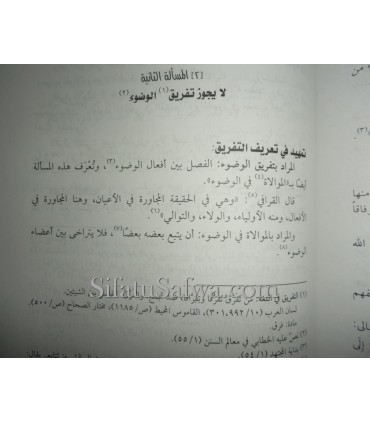 [٢] المسألة الثانية
لا يجوز تفريق(١) الوضوء(٢)
تمهيد في تعريف التفريق:
المراد بتفريق الوضوء: الفصل بين أفعال الوضوء(٣)، وتُعْرَف هذه المسألة
أيضًا بـالموالاة(٤) في الوضوء.
قال القرافي(٥): «وهي في الحقيقة المجاورة في الأعيان، وهنا المجاورة في
الأفعال، ومنه الأولياء، والولاء، والتوالي»(٦).
والمراد بالموالاة في الوضوء: أن يتبع بعضه بعضًا(٧)، فلا يتراخى بين أعضاء
الوضوء(٨).
SifatuSafwa.com
(١) التفريق في اللغة: من فرق تفرقًا وتفريقًا،
لسان العرب (٣٠١،٩٩٢/١٠)، القاموس المحيط (ص/١١٨٥)، مختار الصحاح (ص/٥٠٠).
مادة: فرق.
(٢) نص عليه الخطابي في معالم السنن (٥٥/١).
(٣) بداية المجتهد (٥٤/١).
ه من
منها
وفاقًا
الله
فهم
الى:
إلى